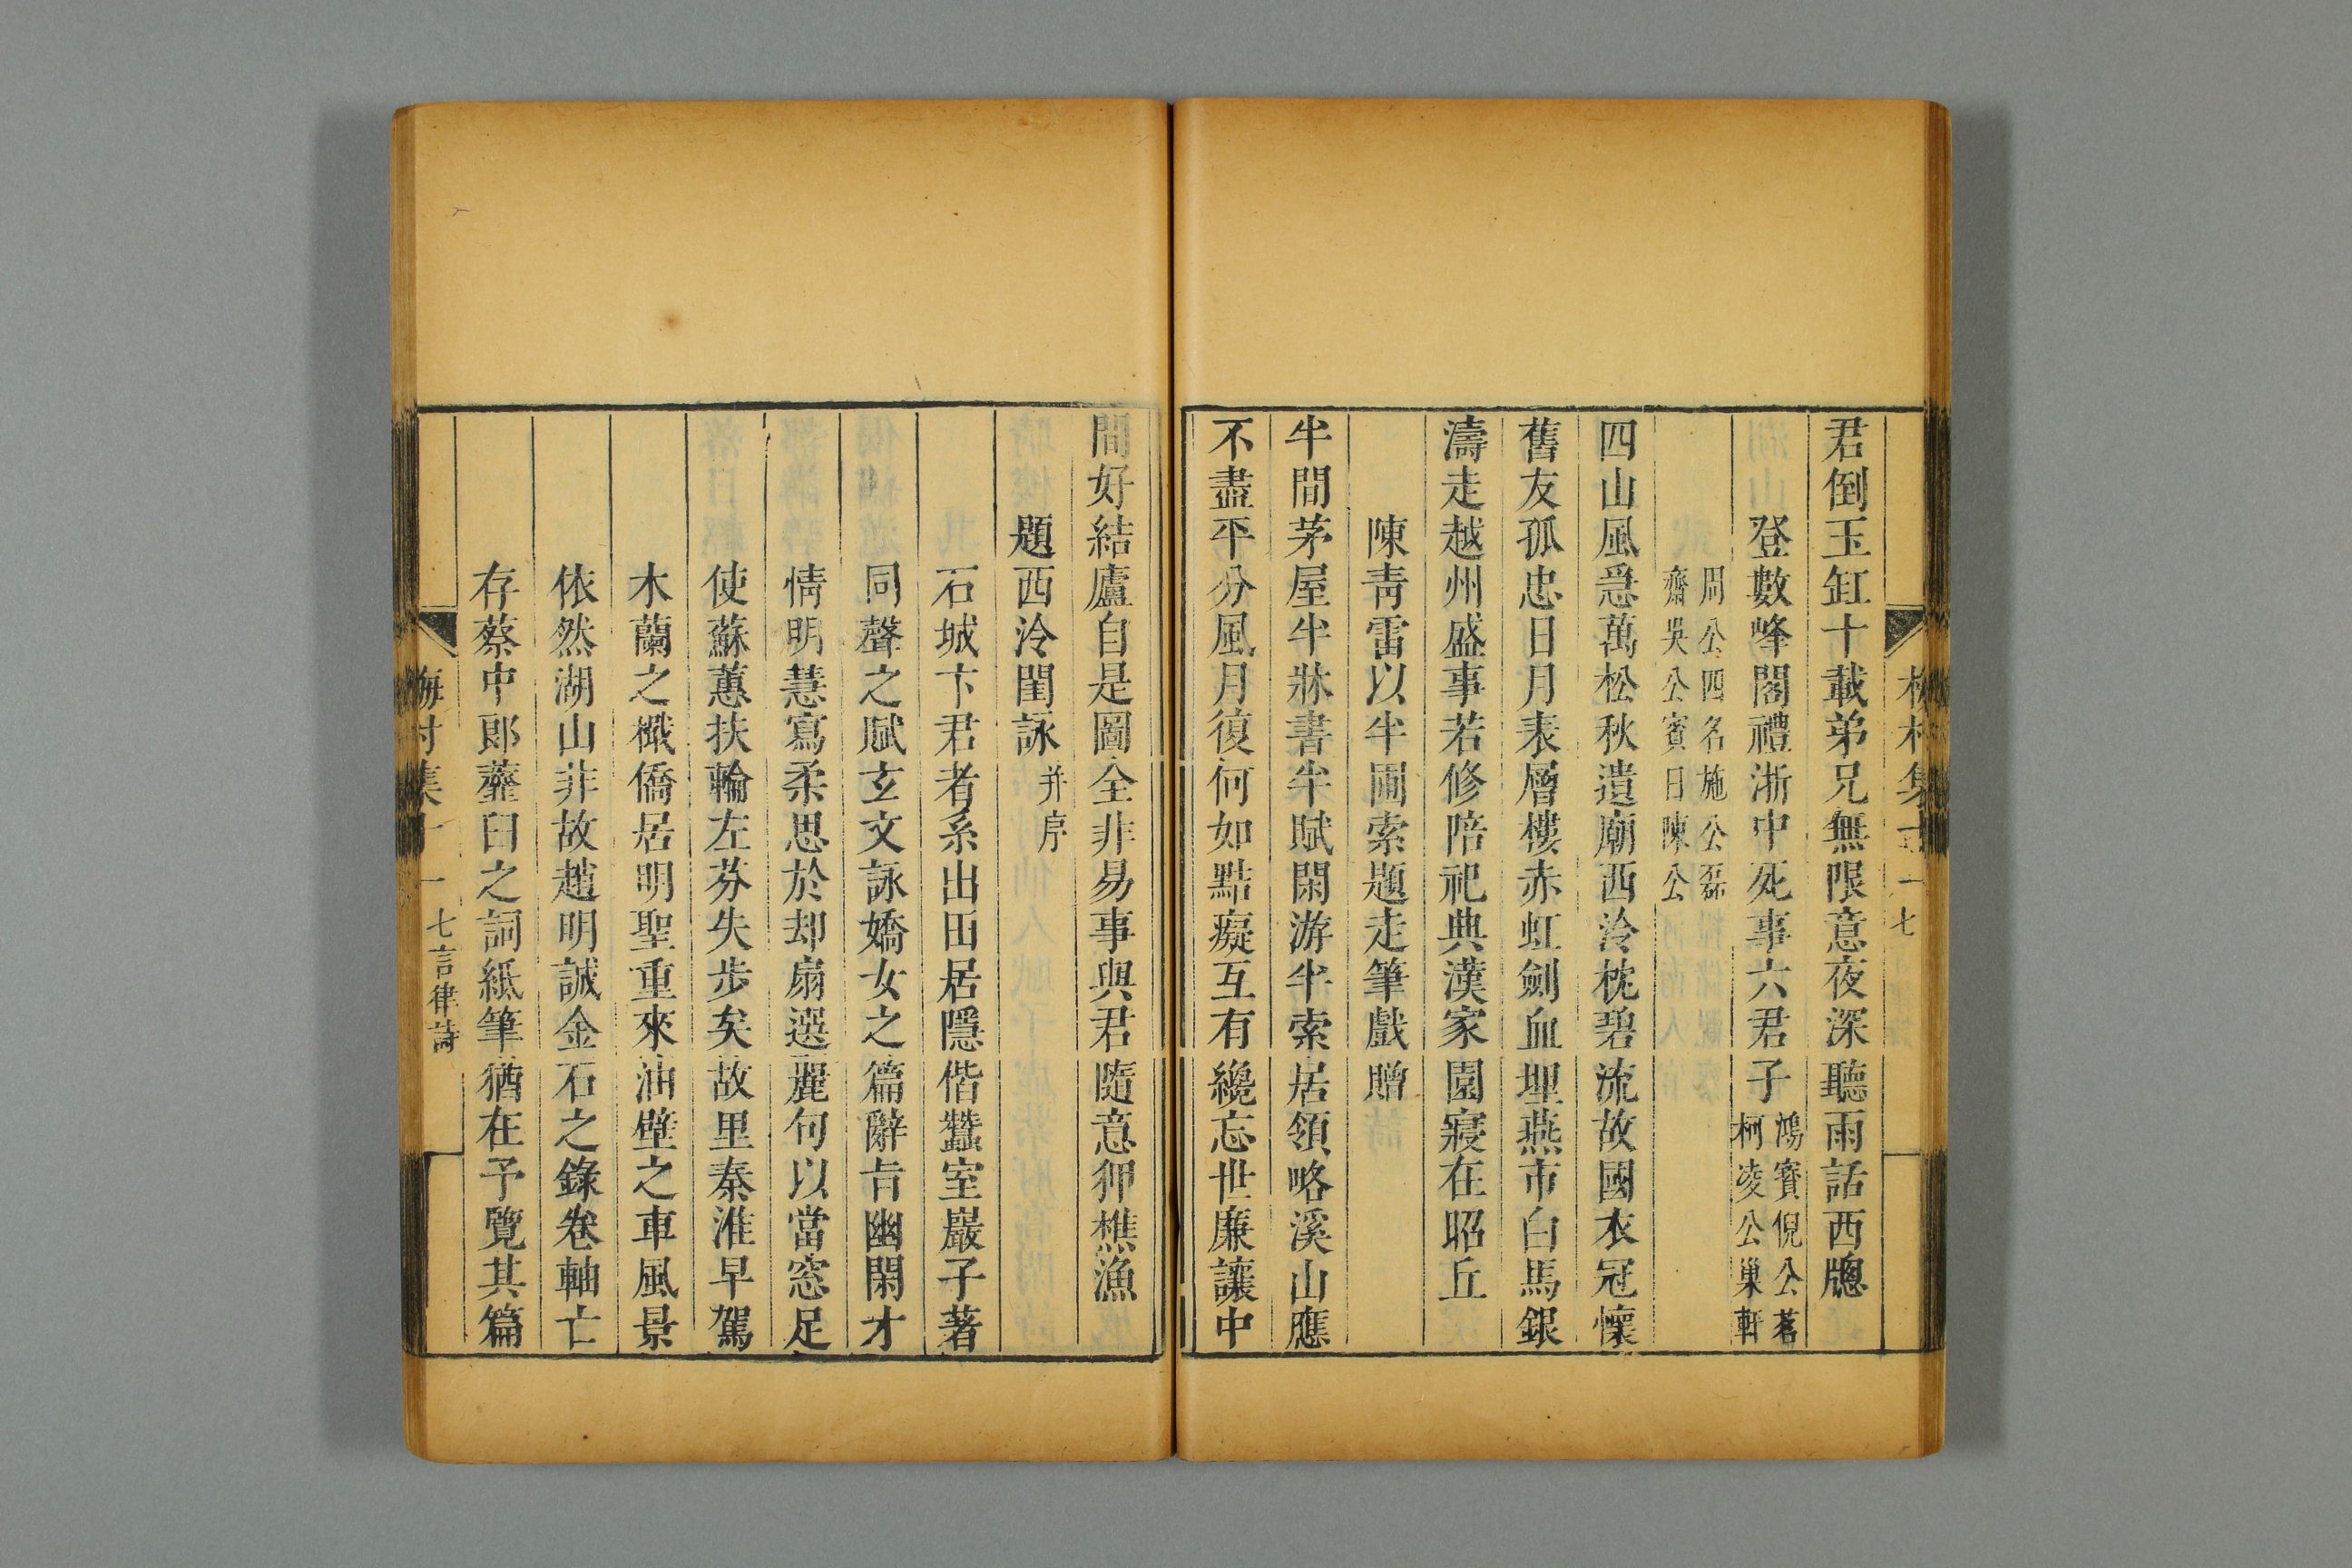 君倒玉缸十載弟兄無限意夜深聽雨話西牕
登數峰閣禮浙中死事六君子鴻寳倪公茗柯凌公巢軒
周公四名施公磊齋吳公賓日陳公
四山風急萬松秋遺廟西泠枕碧流故國衣冠懷
舊友孤忠日月表層樓赤虹劍血埋燕市白馬銀
濤走越州盛事若修陪祀典漢家園寢在昭丘
陳青雷以半圃索題走筆戲贈
半間茅屋半牀書半賦閑游半索居領略溪山應
不盡平分風月復何如點癡互有纔忘世廉讓中
間好結廬自是圖全非易事與君隨意狎樵漁
題西泠閨詠并序
石城卞君者系出田居隱偕蠶室巖子著
同聲之賦玄文詠嬌女之篇辭旨幽閑才
情明慧寫柔思於却扇選麗句以當窓足
使蘇蕙扶輪左芬失步矣故里秦淮早駕
木蘭之檝僑居明聖重來油壁之車風景
依然湖山非故趙明誠金石之錄卷軸亡
存蔡中郎虀臼之詞紙筆猶在予覽其篇
七言律詩